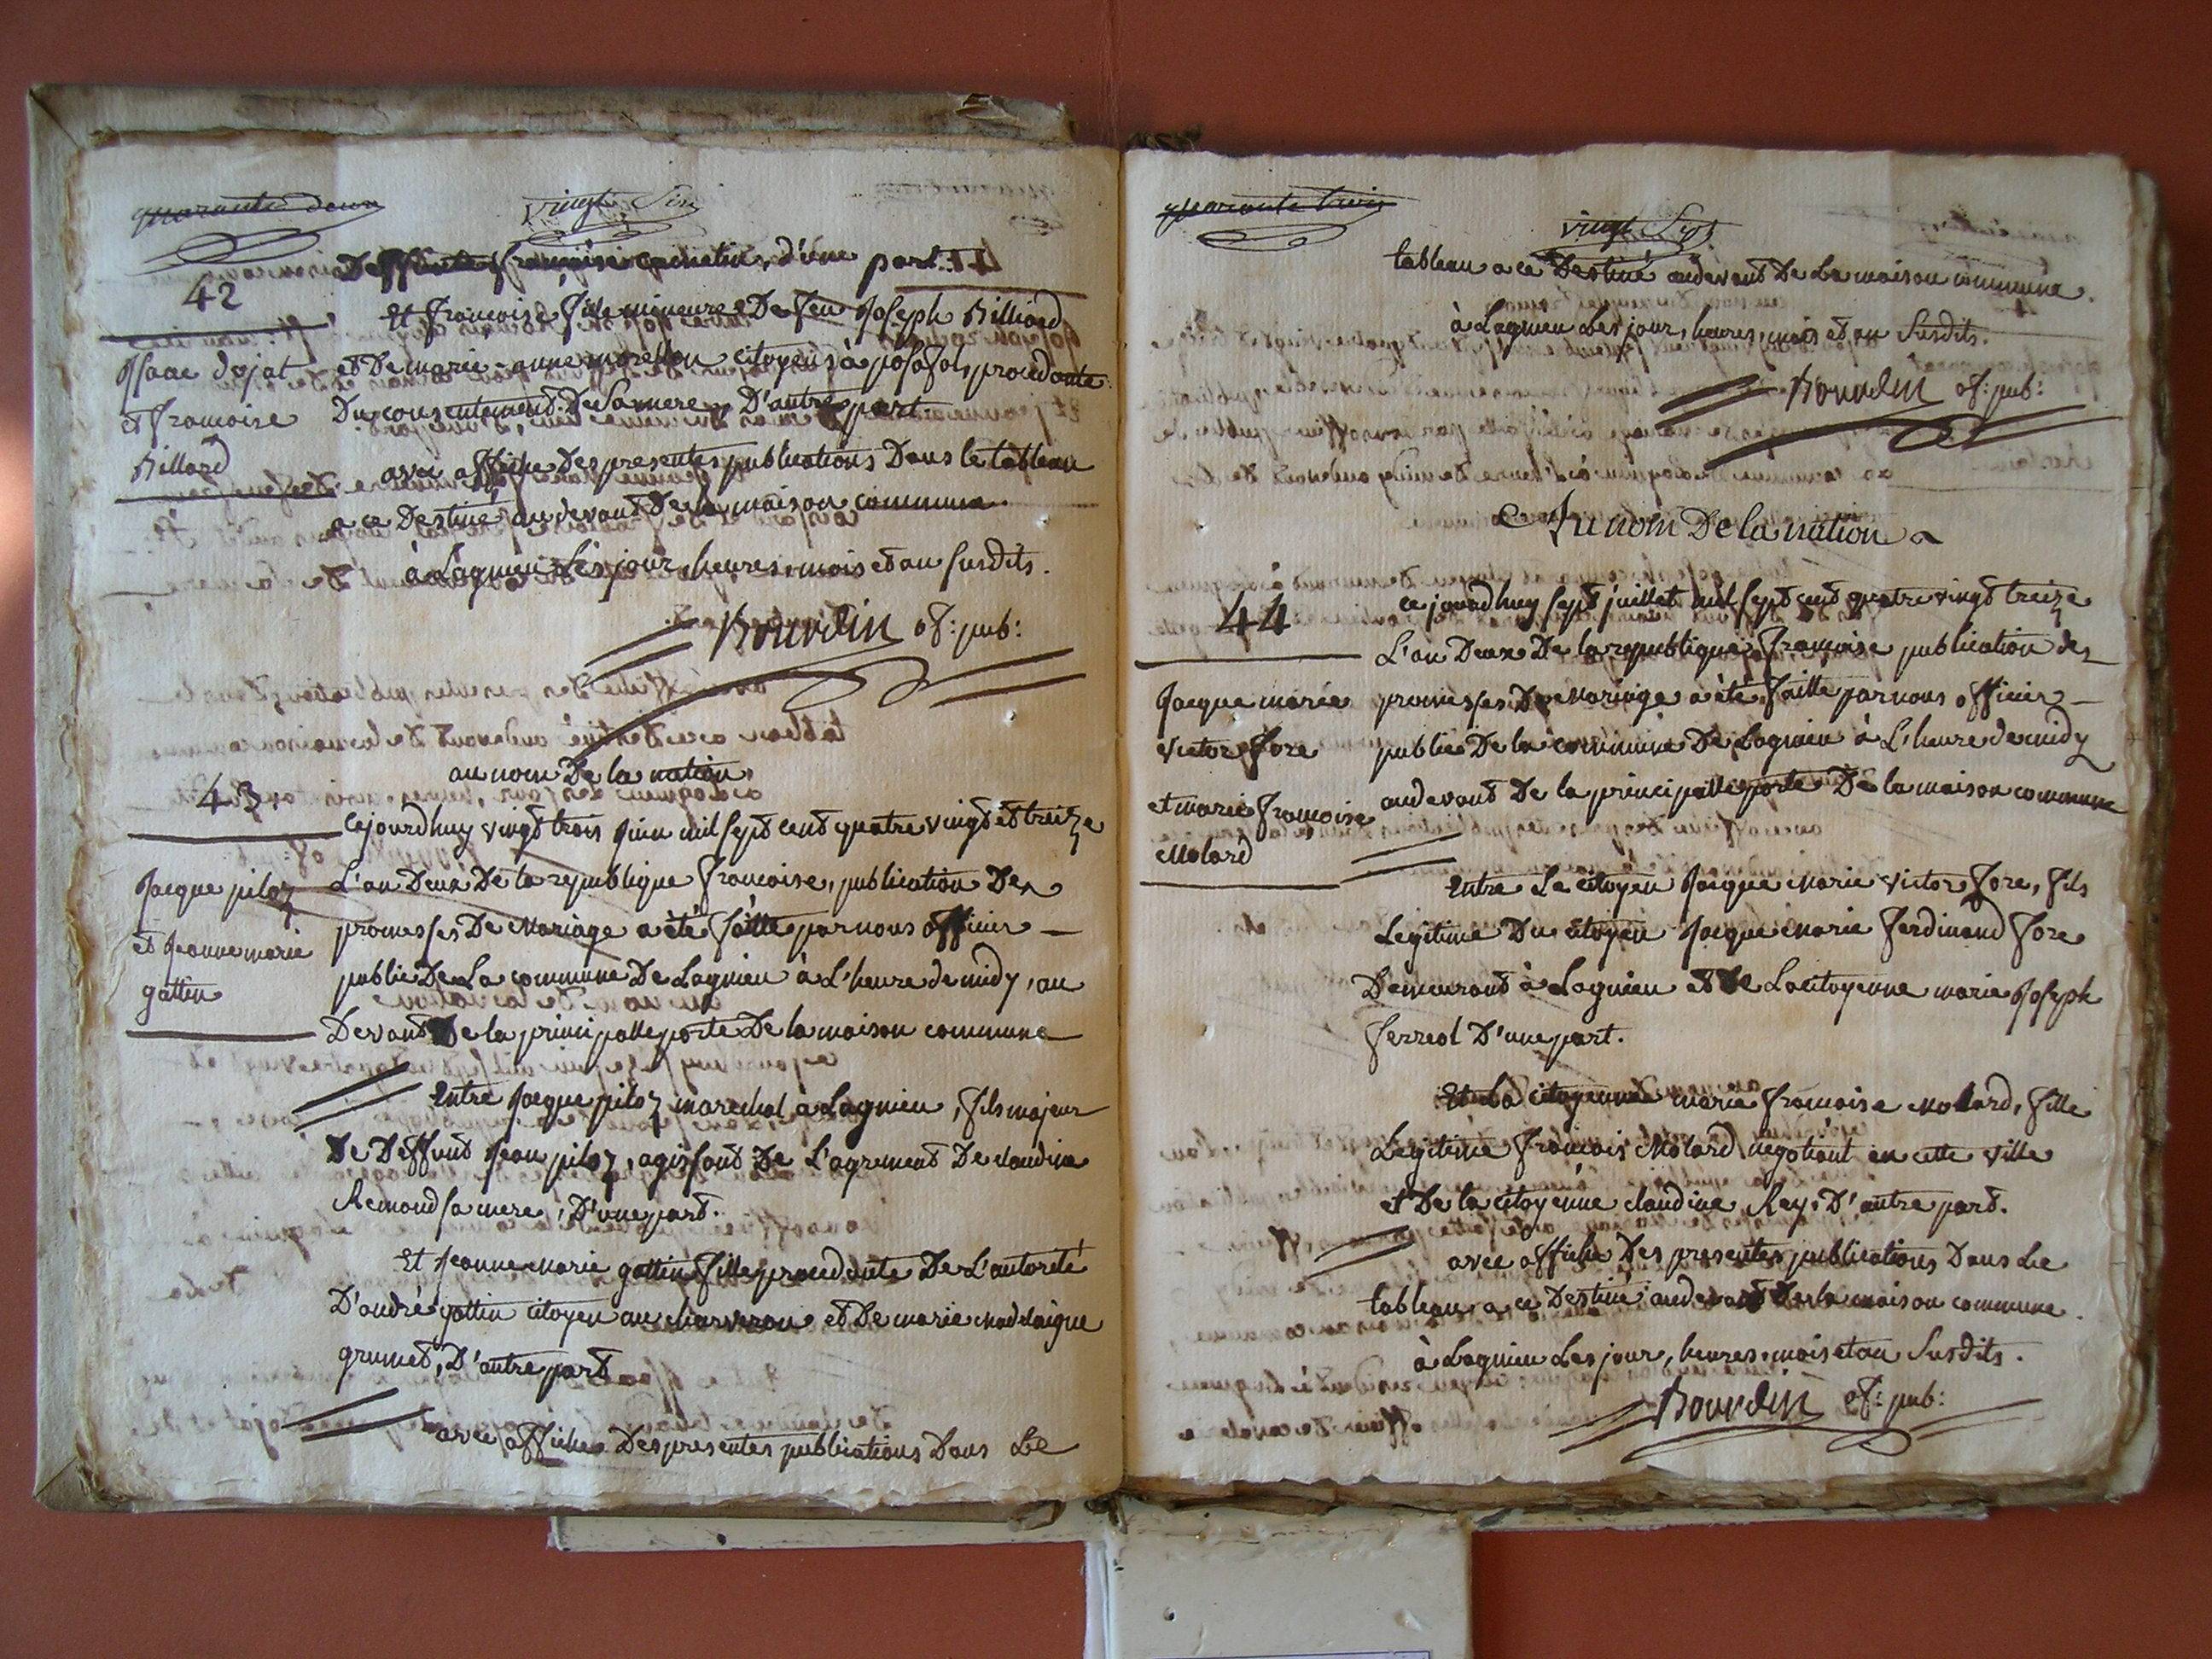 quarante deux
vingt Six
Deffunte françoise cachetin, d'une part.
42
Et francoise fille mineure De feu Joseph Billiard
Isaac dojat
et De marie-anne morellon citoyens à posafol, procedante
et francoise
Du consentement De Sa mere, D'autre part.
Billard
avec affiche Des presentes publications Dans le tableau
a ce Destiné au devant De la maison commune.
à Lagnieu Les jour, heures, mois et an susdits.
Bourdin of: pub:
au nom De la nation,
43
Cejourdhuy vingt trois juin mil sept cent quatre vingt et treize
Jacque piloz
L'an Deux De la republique francoise, publication Des
promesses De Mariage a été faitte par nous officier
et Jeanne marie
public De La commune De Lagnieu à L'heure de midy, au
gattin
Devant De la principalle porte De la maison commune
Entre Jacque piloz marechal à Lagnieu, fils majeur
De Deffunt Jean piloz, agissant De L'agrement De claudine
Remond sa mere, D'une part.
Et Jeanne Marie gattin fille procedante De L'autorité
D'andré gattin citoyen au charveron et De marie Madelaigne
grumet, D'autre part
avec affiche Des presentes publications Dans Le
quarante trois
vingt Sept
tableau a ce Destiné audevant De La maison commune.
à Lagnieu Les jour, heures, mois et an Susdits.
Bourdin of: pub:
Au nom De la nation
44
Ce jourdhuy sept juillet mil sept cent quatre vingt treize
L'an Deux De la republique francoise publication des
Jacque marie
promesses De Mariage a été faitte par nous officier
victor fore
public De la commune De Lagnieu à L'heure de midy
et marie francoise
audevant De la principalle porte De la maison commune
Molard
Entre Le citoyen Jacque Marie victor fore, fils
Legitime Du citoyen Jacque Marie ferdinand fore
Demeurant à Lagnieu et De La citoyenne marie Joseph
ferreol D'une part.
Et La citoyenne marie francoise Molard, fille
Legitime francois Molard negotiant en cette ville
et De la citoyenne claudine Rey, D'autre part.
avec affiche Des presentes publications Dans Le
tableau a ce Destiné audevant De la maison commune.
à Lagnieu Les jour, heures, mois et an Susdits.
Bourdin of: pub: